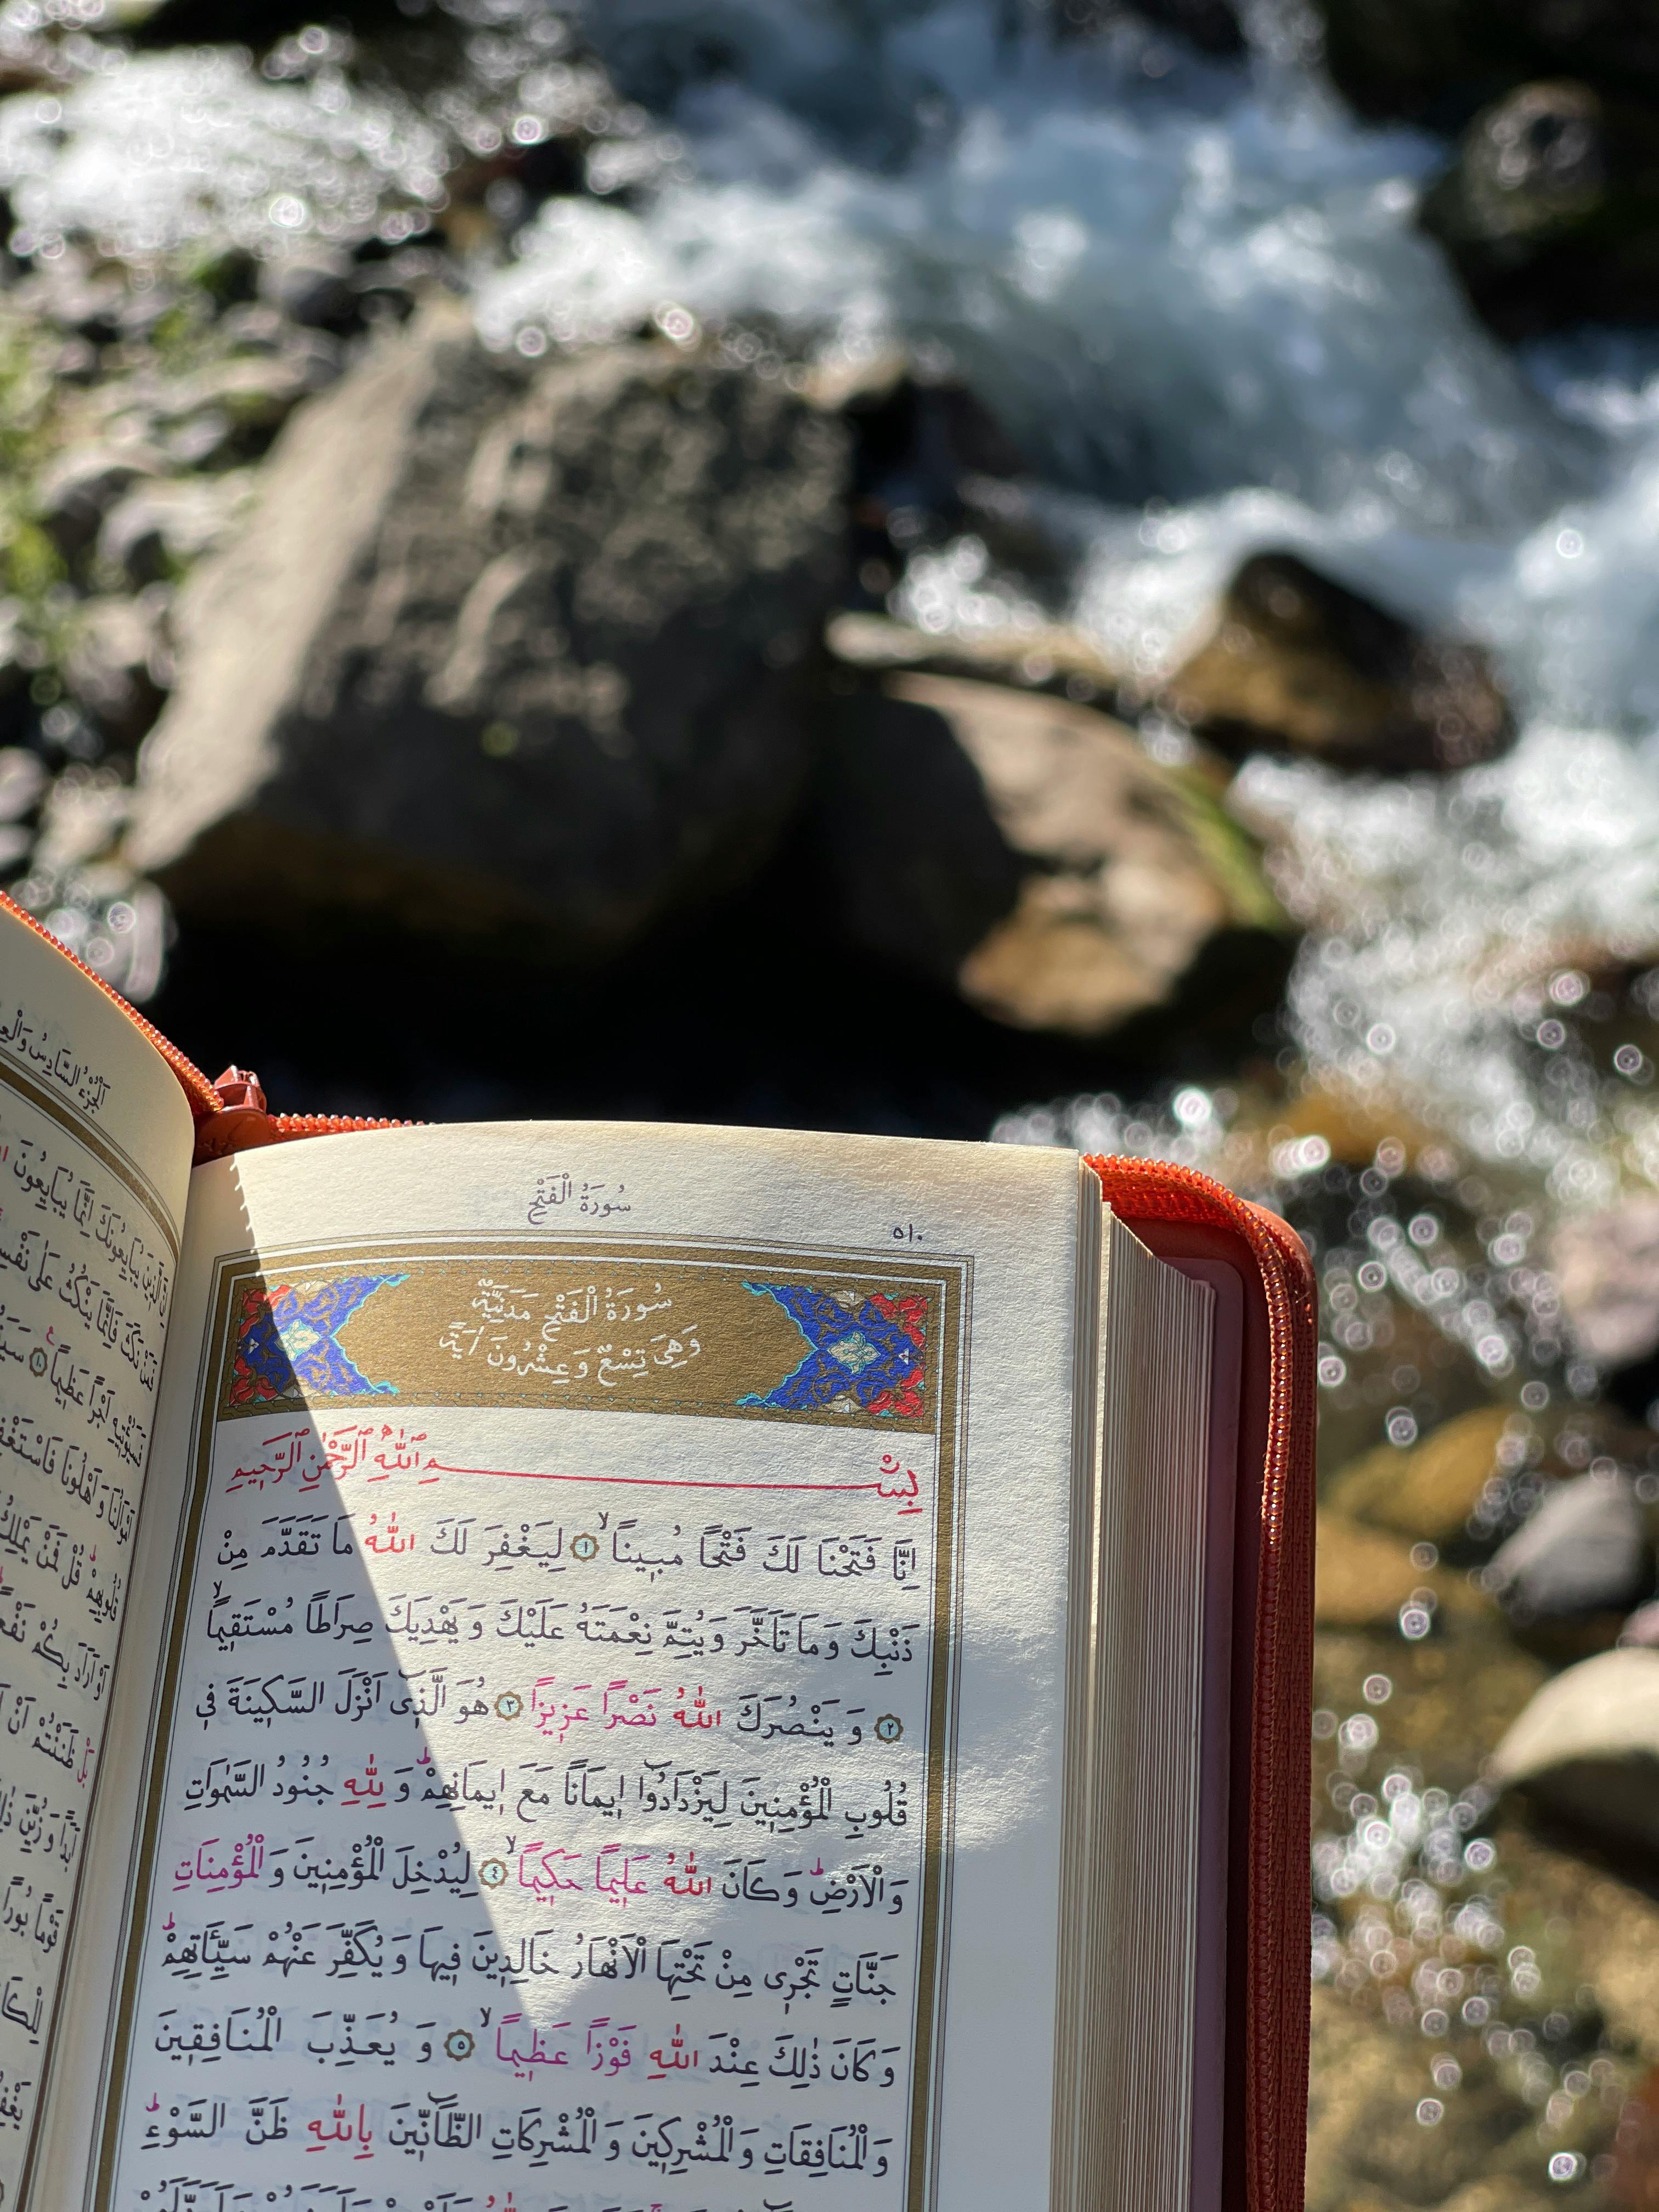 سُورَةُ الْفَتْحِ
٥١٠
سُورَةُ الْفَتْحِ مَدَنِيَّةٌ
وَهِيَ تِسْعٌ وَعِشْرُونَ اٰيَةً
بِسْمِ اللّٰهِ الرَّحْمٰنِ الرَّحِيمِ
اِنَّا فَتَحْنَا لَكَ فَتْحًا مُبِينًاۙ ﴿١﴾ لِيَغْفِرَ لَكَ اللّٰهُ مَا تَقَدَّمَ مِنْ
ذَنْبِكَ وَمَا تَاَخَّرَ وَيُتِمَّ نِعْمَتَهُ عَلَيْكَ وَيَهْدِيَكَ صِرَاطًا مُسْتَقِيمًاۙ
﴿٢﴾ وَيَنْصُرَكَ اللّٰهُ نَصْرًا عَزِيزًا ﴿٣﴾ هُوَ الَّذِٓي اَنْزَلَ السَّكِينَةَ فِي
قُلُوبِ الْمُؤْمِنِينَ لِيَزْدَادُٓوا اِيمَانًا مَعَ اِيمَانِهِمْۜ وَلِلّٰهِ جُنُودُ السَّمٰوَاتِ
وَالْاَرْضِۜ وَكَانَ اللّٰهُ عَلِيمًا حَكِيمًاۙ ﴿٤﴾ لِيُدْخِلَ الْمُؤْمِنِينَ وَالْمُؤْمِنَاتِ
جَنَّاتٍ تَجْرِي مِنْ تَحْتِهَا الْاَنْهَارُ خَالِدِينَ فِيهَا وَيُكَفِّرَ عَنْهُمْ سَيِّـَٔاتِهِمْۜ
وَكَانَ ذٰلِكَ عِنْدَ اللّٰهِ فَوْزًا عَظِيمًاۙ ﴿٥﴾ وَيُعَذِّبَ الْمُنَافِقِينَ
وَالْمُنَافِقَاتِ وَالْمُشْرِكِينَ وَالْمُشْرِكَاتِ الظَّٓانِّينَ بِاللّٰهِ ظَنَّ السَّوْءِۜ
اَلْجُزْءُ السَّادِسُ
يُبَايِعُونَكَ اِنَّمَا يُبَايِعُونَ
نَكَثَ فَاِنَّمَا يَنْكُثُ عَلٰى
فَسَيُؤْتِيهِ اَجْرًا عَظِيمًا ﴿١٠﴾
اَمْوَالُنَا وَاَهْلُونَا فَاسْتَغْفِرْ
قُلُوبِهِمْۜ قُلْ فَمَنْ يَمْلِكُ
اَوْ اَرَادَ بِكُمْ
بَلْ ظَنَنْتُمْ اَنْ